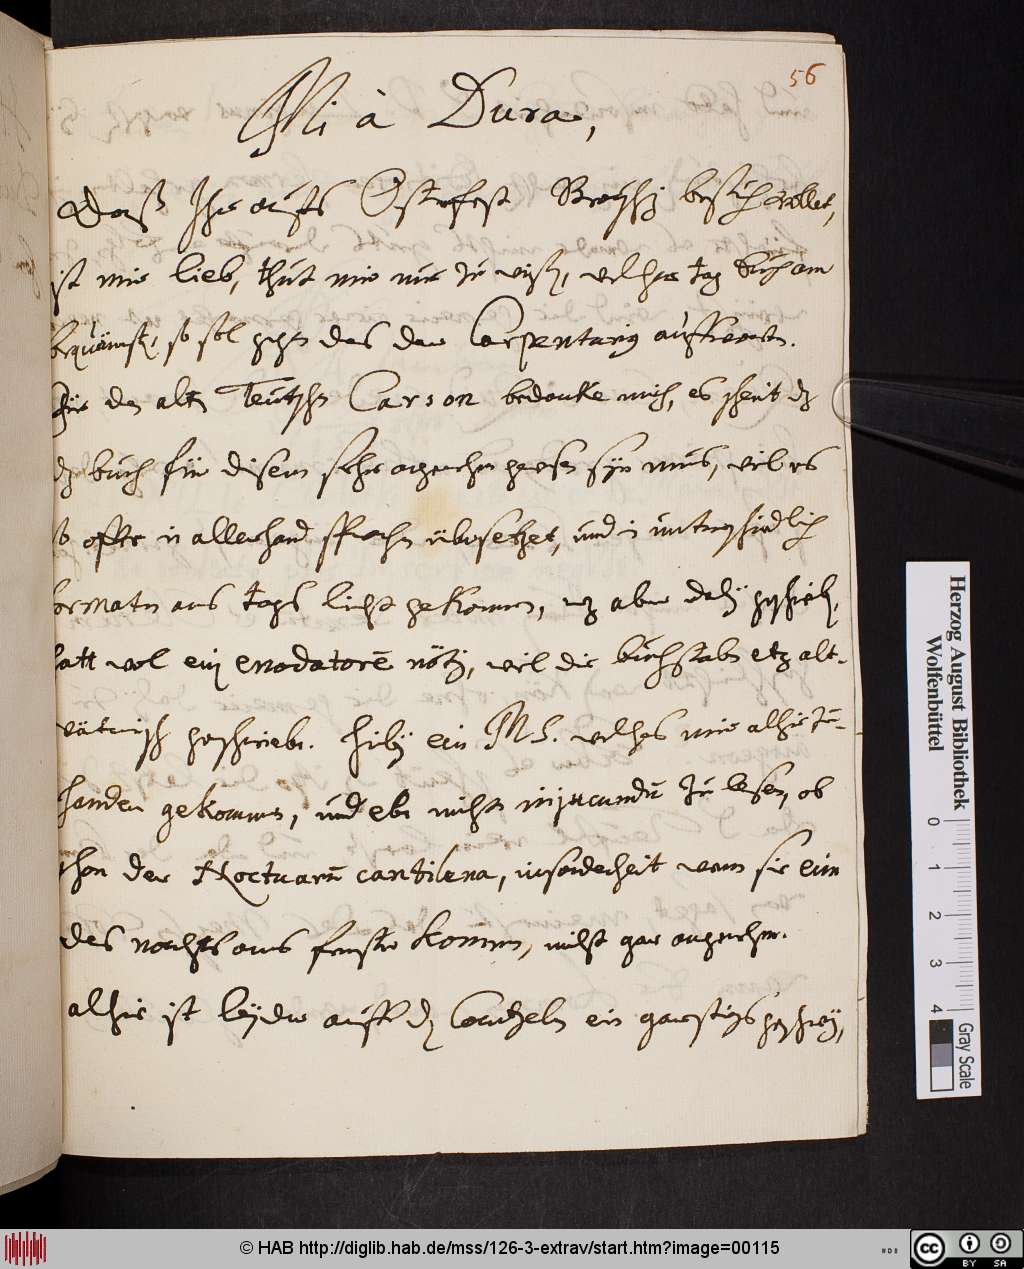 56
Mi à Dura,
Daß Ihr aufs Osterfest besuchen wollet,
ist mir lieb, thut mir nur zu wißen, welcher tag Euch am
bequämsten, so sol gegen das der Carpentarius aufwarten.
Für den alten Teutschen Carson bedancke mich, es scheint dz
dz buch für disem sehr angenehm gewesen seyn mus, weil es
so offte in allerhand sprachen übersetzet, und in unterschiedlichen
formaten ans tages licht gekommen, aber
hatt wol ein enodatorē nötig, weil die buchstaben etz alt-
vätrisch geschrieben. Hirbey ein MS. welches mir alhie zu-
handen gekommen, und eben nicht injucundū zu lesen, ob
schon der Noctuarū cantilena, insonderheit wenn sie einen
des nachts ans fenster kommen, nicht gar angenehm.
alhie ist leyder auff der Cantzeln ein garstiges geschrey,
Herzog August Bibliothek
Wolfenbüttel
0 1 2 3 4
Gray Scale
© HAB http://diglib.hab.de/mss/126-3-extrav/start.htm?image=00115
cc BY SA